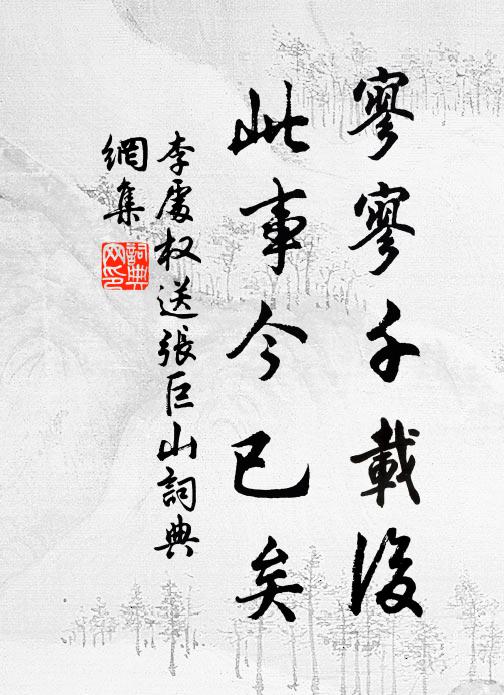 寥寥千載後
此事今已矣
李處权送張巨山詞典
網集
詞典
网印